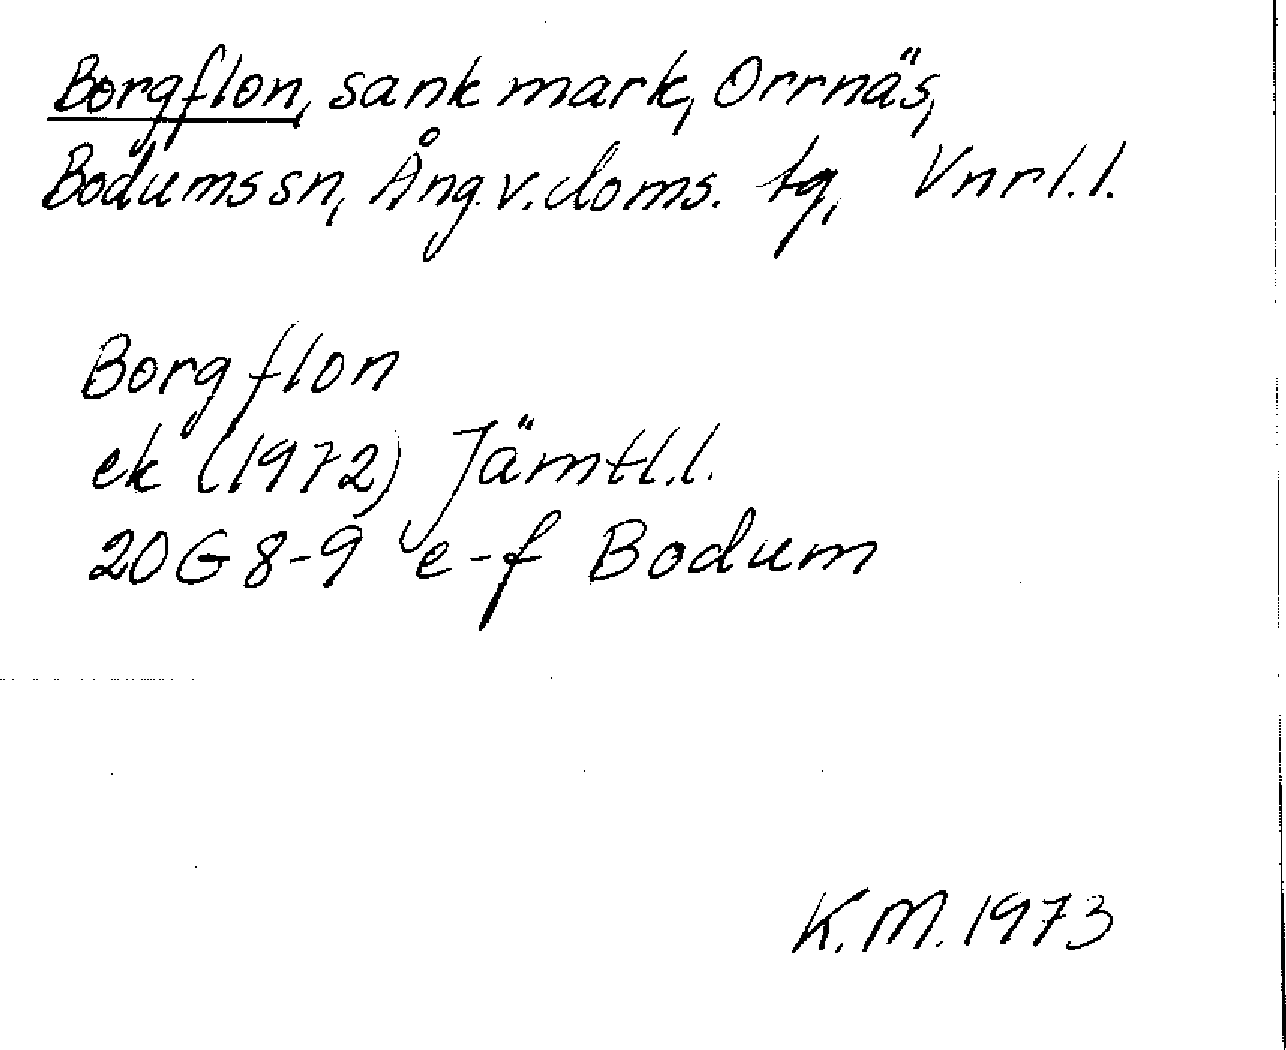 Borgflon, sank mark, Orrnäs,
Bodums sn, Ång.v.doms. tg, Vnrl.l.
Borgflon
ek (1972) Jämtl.l.
20G 8-9 e-f Bodum
K.M. 1973